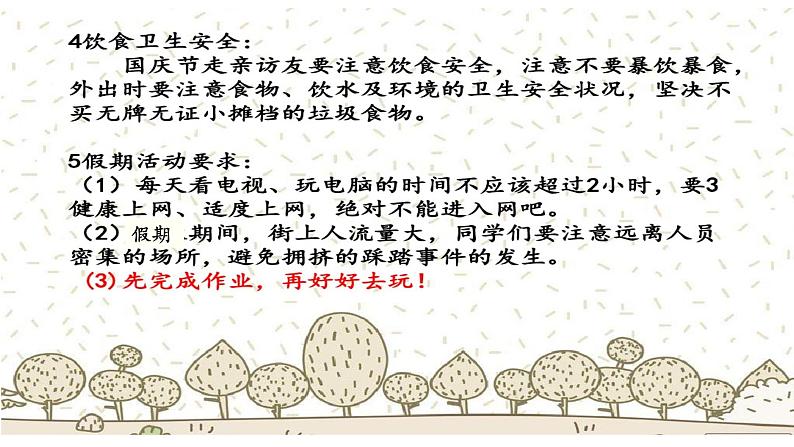 4饮食卫生安全：
国庆节走亲访友要注意饮食安全，注意不要暴饮暴食，
外出时要注意食物、饮水及环境的卫生安全状况，坚决不
买无牌无证小摊档的垃圾食物。
5假期活动要求：
（1）每天看电视、玩电脑的时间不应该超过2小时，要3
健康上网、适度上网，绝对不能进入网吧。
（2）假期 .期间，街上人流量大，同学们要注意远离人员
密集的场所，避免拥挤的踩踏事件的发生。
(3)先完成作业，再好好去玩！